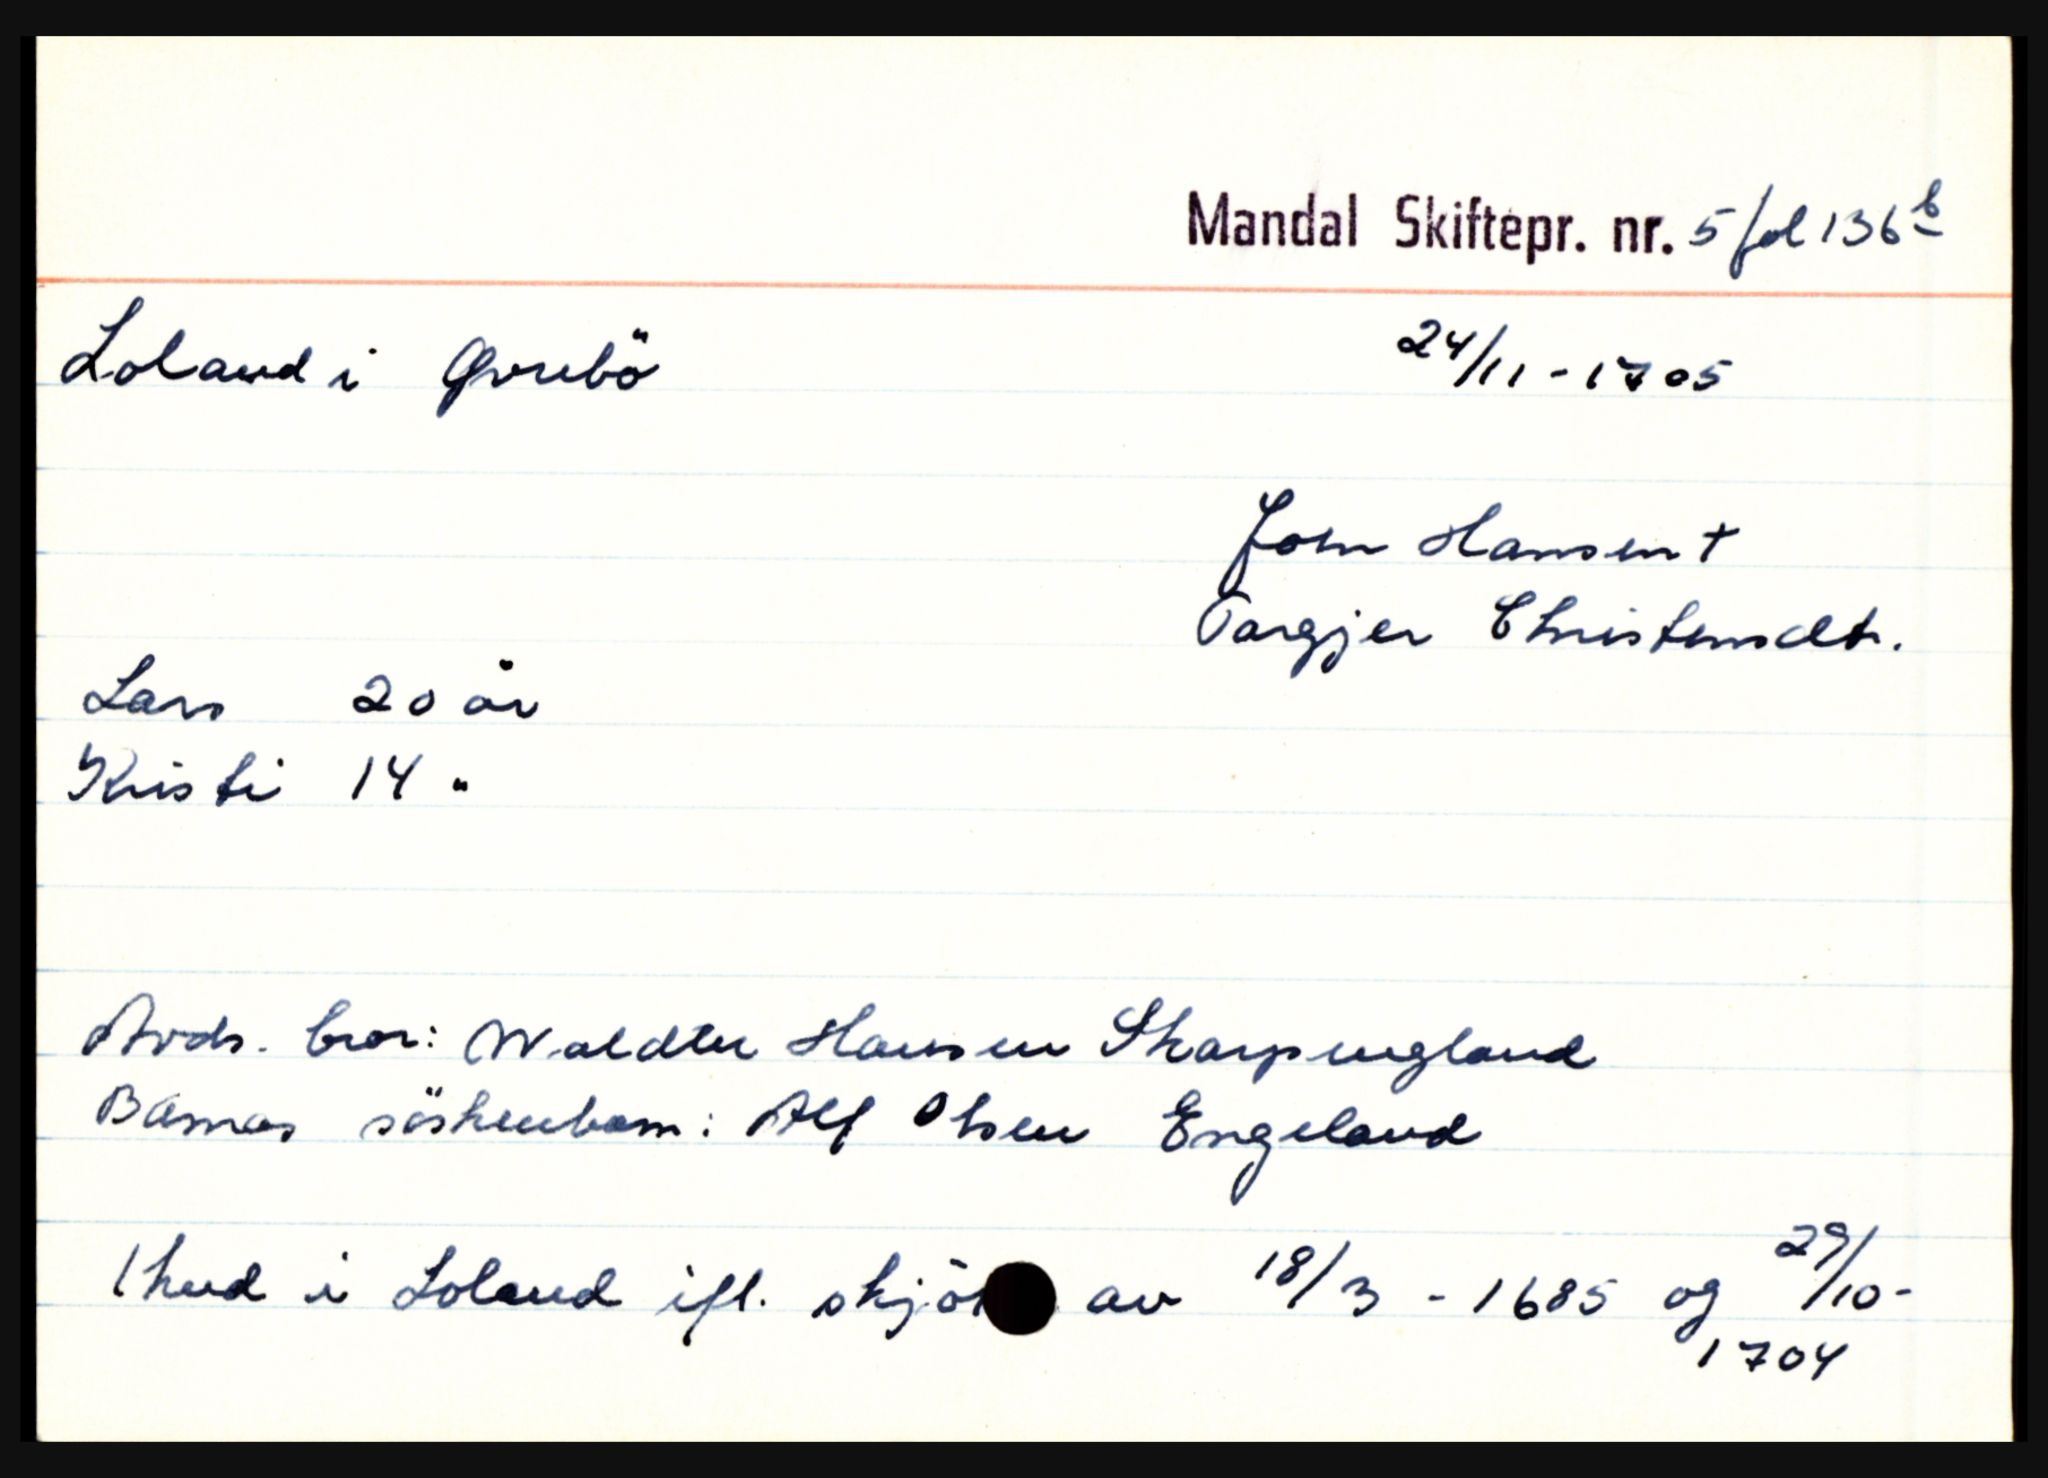 Mandal Skiftepr. nr. 5 fol 136 b
Loland i Øvrebö 24/11 - 1705
John Hansen +
Targjer Christensdtr.
Lars 20 år
Kristi 14 "
Avds. bror: Waldter Hansen Skarpengland
Barnas söskenbarn: Alf Olsen Engeland
1 hud i Loland ifl. av 18/3 - 1685 og 29/10 -
1704